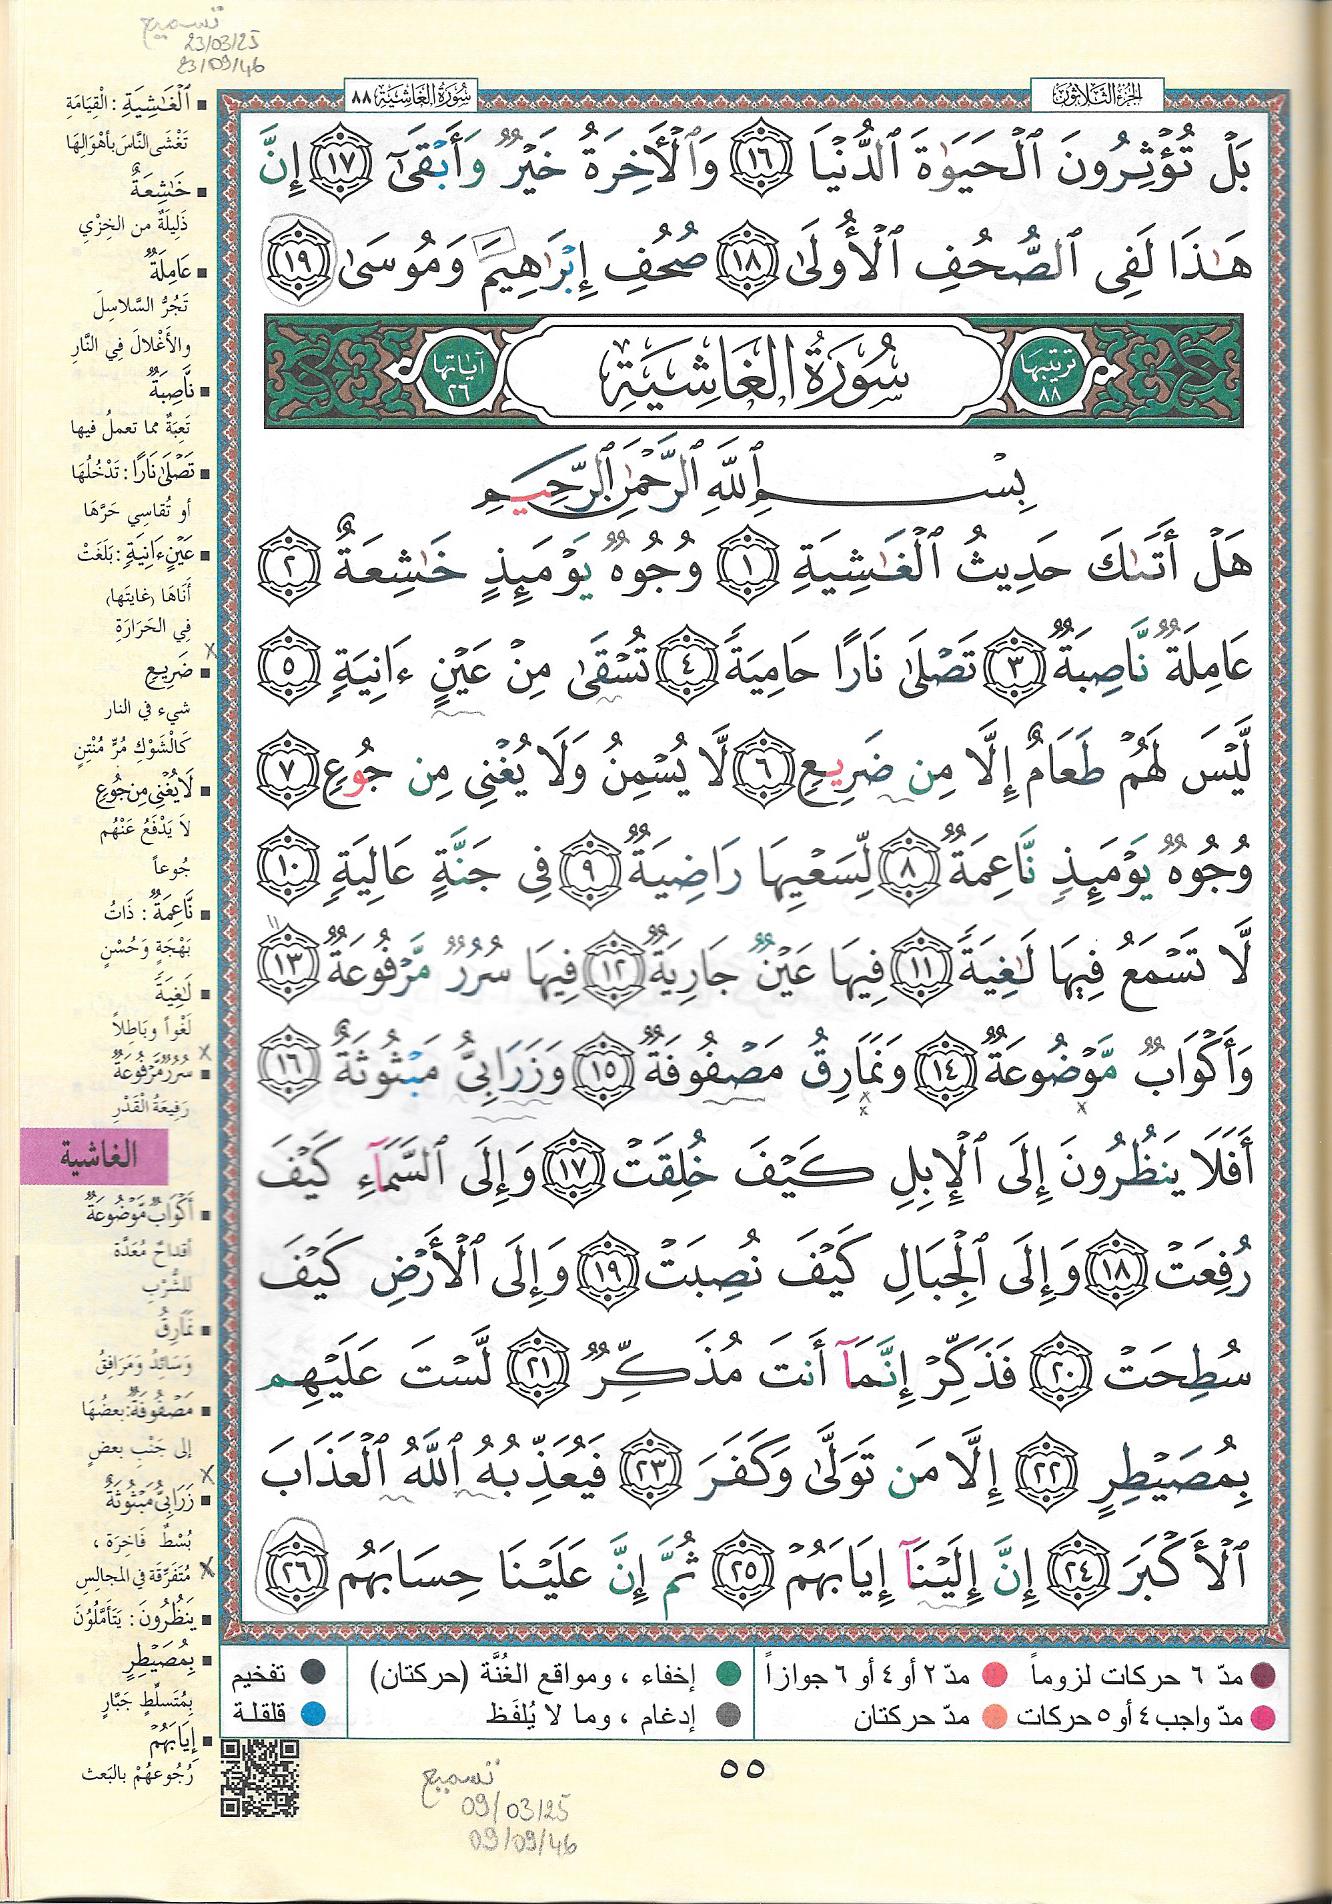 تسميع
23/03/25
23/09/46
سُورَةُ الغَاشِيَة ٨٨
الجزء الثلاثون
بَلْ تُؤْثِرُونَ ٱلْحَيَوٰةَ ٱلدُّنْيَا ١٦ وَٱلْأَخِرَةُ خَيْرٌ وَأَبْقَىٰٓ ١٧ إِنَّ
هَـٰذَا لَفِى ٱلصُّحُفِ ٱلْأُولَىٰ ١٨ صُحُفِ إِبْرَٰهِيمَ وَمُوسَىٰ ١٩
ترتيبها ٨٨
سُورَةُ الغَاشِيَةِ
آياتها ٢٦
بِسْمِ ٱللَّهِ ٱلرَّحْمَٰنِ ٱلرَّحِيمِ
هَلْ أَتَىٰكَ حَدِيثُ ٱلْغَٰشِيَةِ ١ وُجُوهٌ يَوْمَئِذٍ خَٰشِعَةٌ ٢
عَامِلَةٌ نَّاصِبَةٌ ٣ تَصْلَىٰ نَارًا حَامِيَةً ٤ تُسْقَىٰ مِنْ عَيْنٍ ءَانِيَةٍ ٥
لَّيْسَ لَهُمْ طَعَامٌ إِلَّا مِن ضَرِيعٍ ٦ لَّا يُسْمِنُ وَلَا يُغْنِى مِن جُوعٍ ٧
وُجُوهٌ يَوْمَئِذٍ نَّاعِمَةٌ ٨ لِّسَعْيِهَا رَاضِيَةٌ ٩ فِى جَنَّةٍ عَالِيَةٍ ١٠
لَّا تَسْمَعُ فِيهَا لَٰغِيَةً ١١ فِيهَا عَيْنٌ جَارِيَةٌ ١٢ فِيهَا سُرُرٌ مَّرْفُوعَةٌ ١٣
وَأَكْوَابٌ مَّوْضُوعَةٌ ١٤ وَنَمَارِقُ مَصْفُوفَةٌ ١٥ وَزَرَابِىُّ مَبْثُوثَةٌ ١٦
أَفَلَا يَنظُرُونَ إِلَى ٱلْإِبِلِ كَيْفَ خُلِقَتْ ١٧ وَإِلَى ٱلسَّمَآءِ كَيْفَ
رُفِعَتْ ١٨ وَإِلَى ٱلْجِبَالِ كَيْفَ نُصِبَتْ ١٩ وَإِلَى ٱلْأَرْضِ كَيْفَ
سُطِحَتْ ٢٠ فَذَكِّرْ إِنَّمَآ أَنتَ مُذَكِّرٌ ٢١ لَّسْتَ عَلَيْهِم
بِمُصَيْطِرٍ ٢٢ إِلَّا مَن تَوَلَّىٰ وَكَفَرَ ٢٣ فَيُعَذِّبُهُ ٱللَّهُ ٱلْعَذَابَ
ٱلْأَكْبَرَ ٢٤ إِنَّ إِلَيْنَآ إِيَابَهُمْ ٢٥ ثُمَّ إِنَّ عَلَيْنَا حِسَابَهُم ٢٦
ٱلْغَٰشِيَةِ : الْقِيَامَةِ
تَغْشَى النَّاسَ بأهْوَالِهَا
خَٰشِعَةٌ
ذَلِيلَةٌ من الخِزْيِ
عَامِلَةٌ
تَجُرُّ السَّلاسِلَ
والأَغْلالَ فِي النَّارِ
نَّاصِبَةٌ
تَعِبَةٌ مما تعملُ فيها
تَصْلَىٰ نَارًا : تَدْخُلُهَا
أو تُقاسِي حَرَّهَا
عَيْنٍ ءَانِيَةٍ : بَلَغَتْ
أَنَاهَا (غايتَها)
فِي الحَرَارَةِ
ضَرِيعٍ
شيء في النار
كَالشَّوْكِ مُرٌّ مُنْتِنٍ
لَا يُغْنِى مِن جُوعٍ
لاَ يَدْفَعُ عَنْهُم
جُوعاً
نَّاعِمَةٌ : ذَاتُ
بَهْجَةٍ وَحُسْنٍ
لَٰغِيَةً
لَغْواً وبَاطِلاً
سُرُرٌ مَّرْفُوعَةٌ
رَفِيعَةُ الْقَدْرِ
الغاشية
أَكْوَابٌ مَّوْضُوعَةٌ
أقداحٌ مُعَدَّة
للشُّرْبِ
نَمَارِقُ
وَسَائِدُ وَمَرَافِقُ
مَصْفُوفَةٌ : بعضُهَا
إلى جَنْبِ بعضٍ
زَرَابِىُّ مَبْثُوثَةٌ
بُسُطٌ فَاخِرَة ،
مُتَفَرِّقَة في المجالِسِ
يَنظُرُونَ : يَتَأَمَّلُوْنَ
بِمُصَيْطِرٍ
بِمُتَسلِّطٍ جَبَّارٍ
إِيَابَهُمْ
رُجُوعهُمْ بالبَعث
مدّ ٦ حركات لزوماً مدّ ٢ أو ٤ أو ٦ جوازاً
مدّ واجب ٤ أو ٥ حركات مدّ حركتان
إخفاء ، ومواقع الغُنَّة (حركتان)
إدغام ، وما لا يُلفَظ
تفخيم
قلقلة
٥٥
تسميع
09/03/25
09/09/46